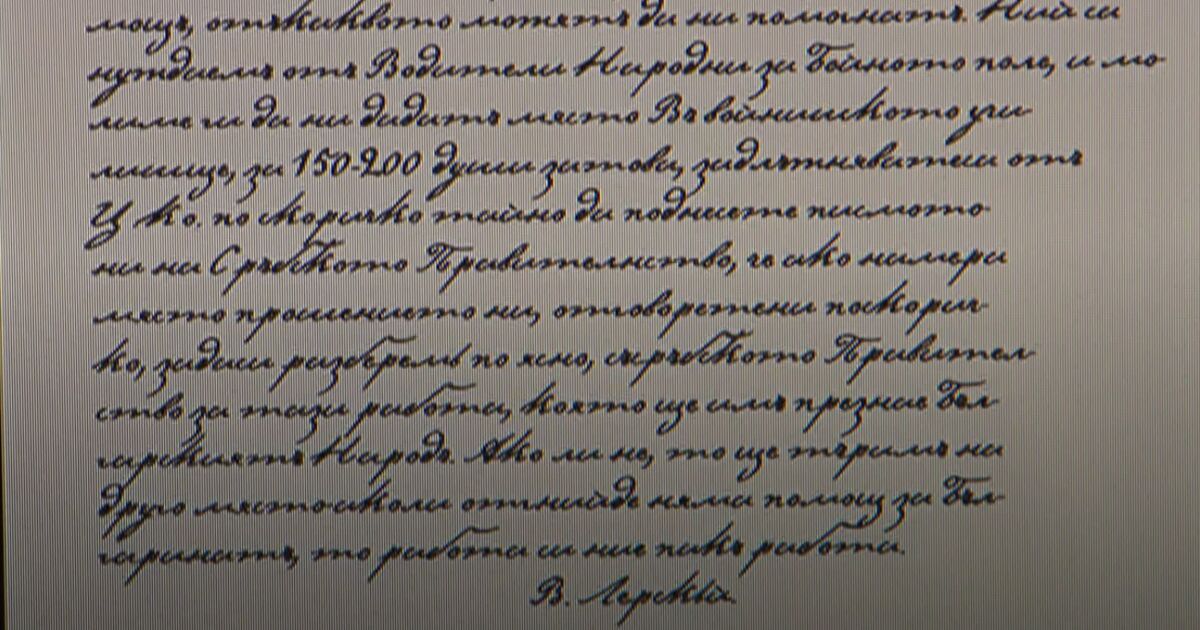 мощъ, отъкиквото можятъ да ни помогнатъ. Ний си
нуждиемъ отъ Водители Народни за Бойното поле, и мо-
лиме ги да ни дадатъ място Въ войнишкото учи-
лище, за 150-200 души затови, задлъжнявити си отъ
Ц. Ко. по скоричко тайно да поднисете писмото
ни на Сръбкото Правителнство, че ако нимери
място прошението ни, отговоретени поскорич-
ко, задаси разберемъ по ясно, съръбкото Правител-
ство за тази работа, която ще имъ презнае Бъл-
гарскиятъ Народъ. Ако ли не, то ще търимъ на
друго място и коли отнийде няма помощ за Бъл-
гаринатъ, то работа си ние пакъ работа.
В. Лерский